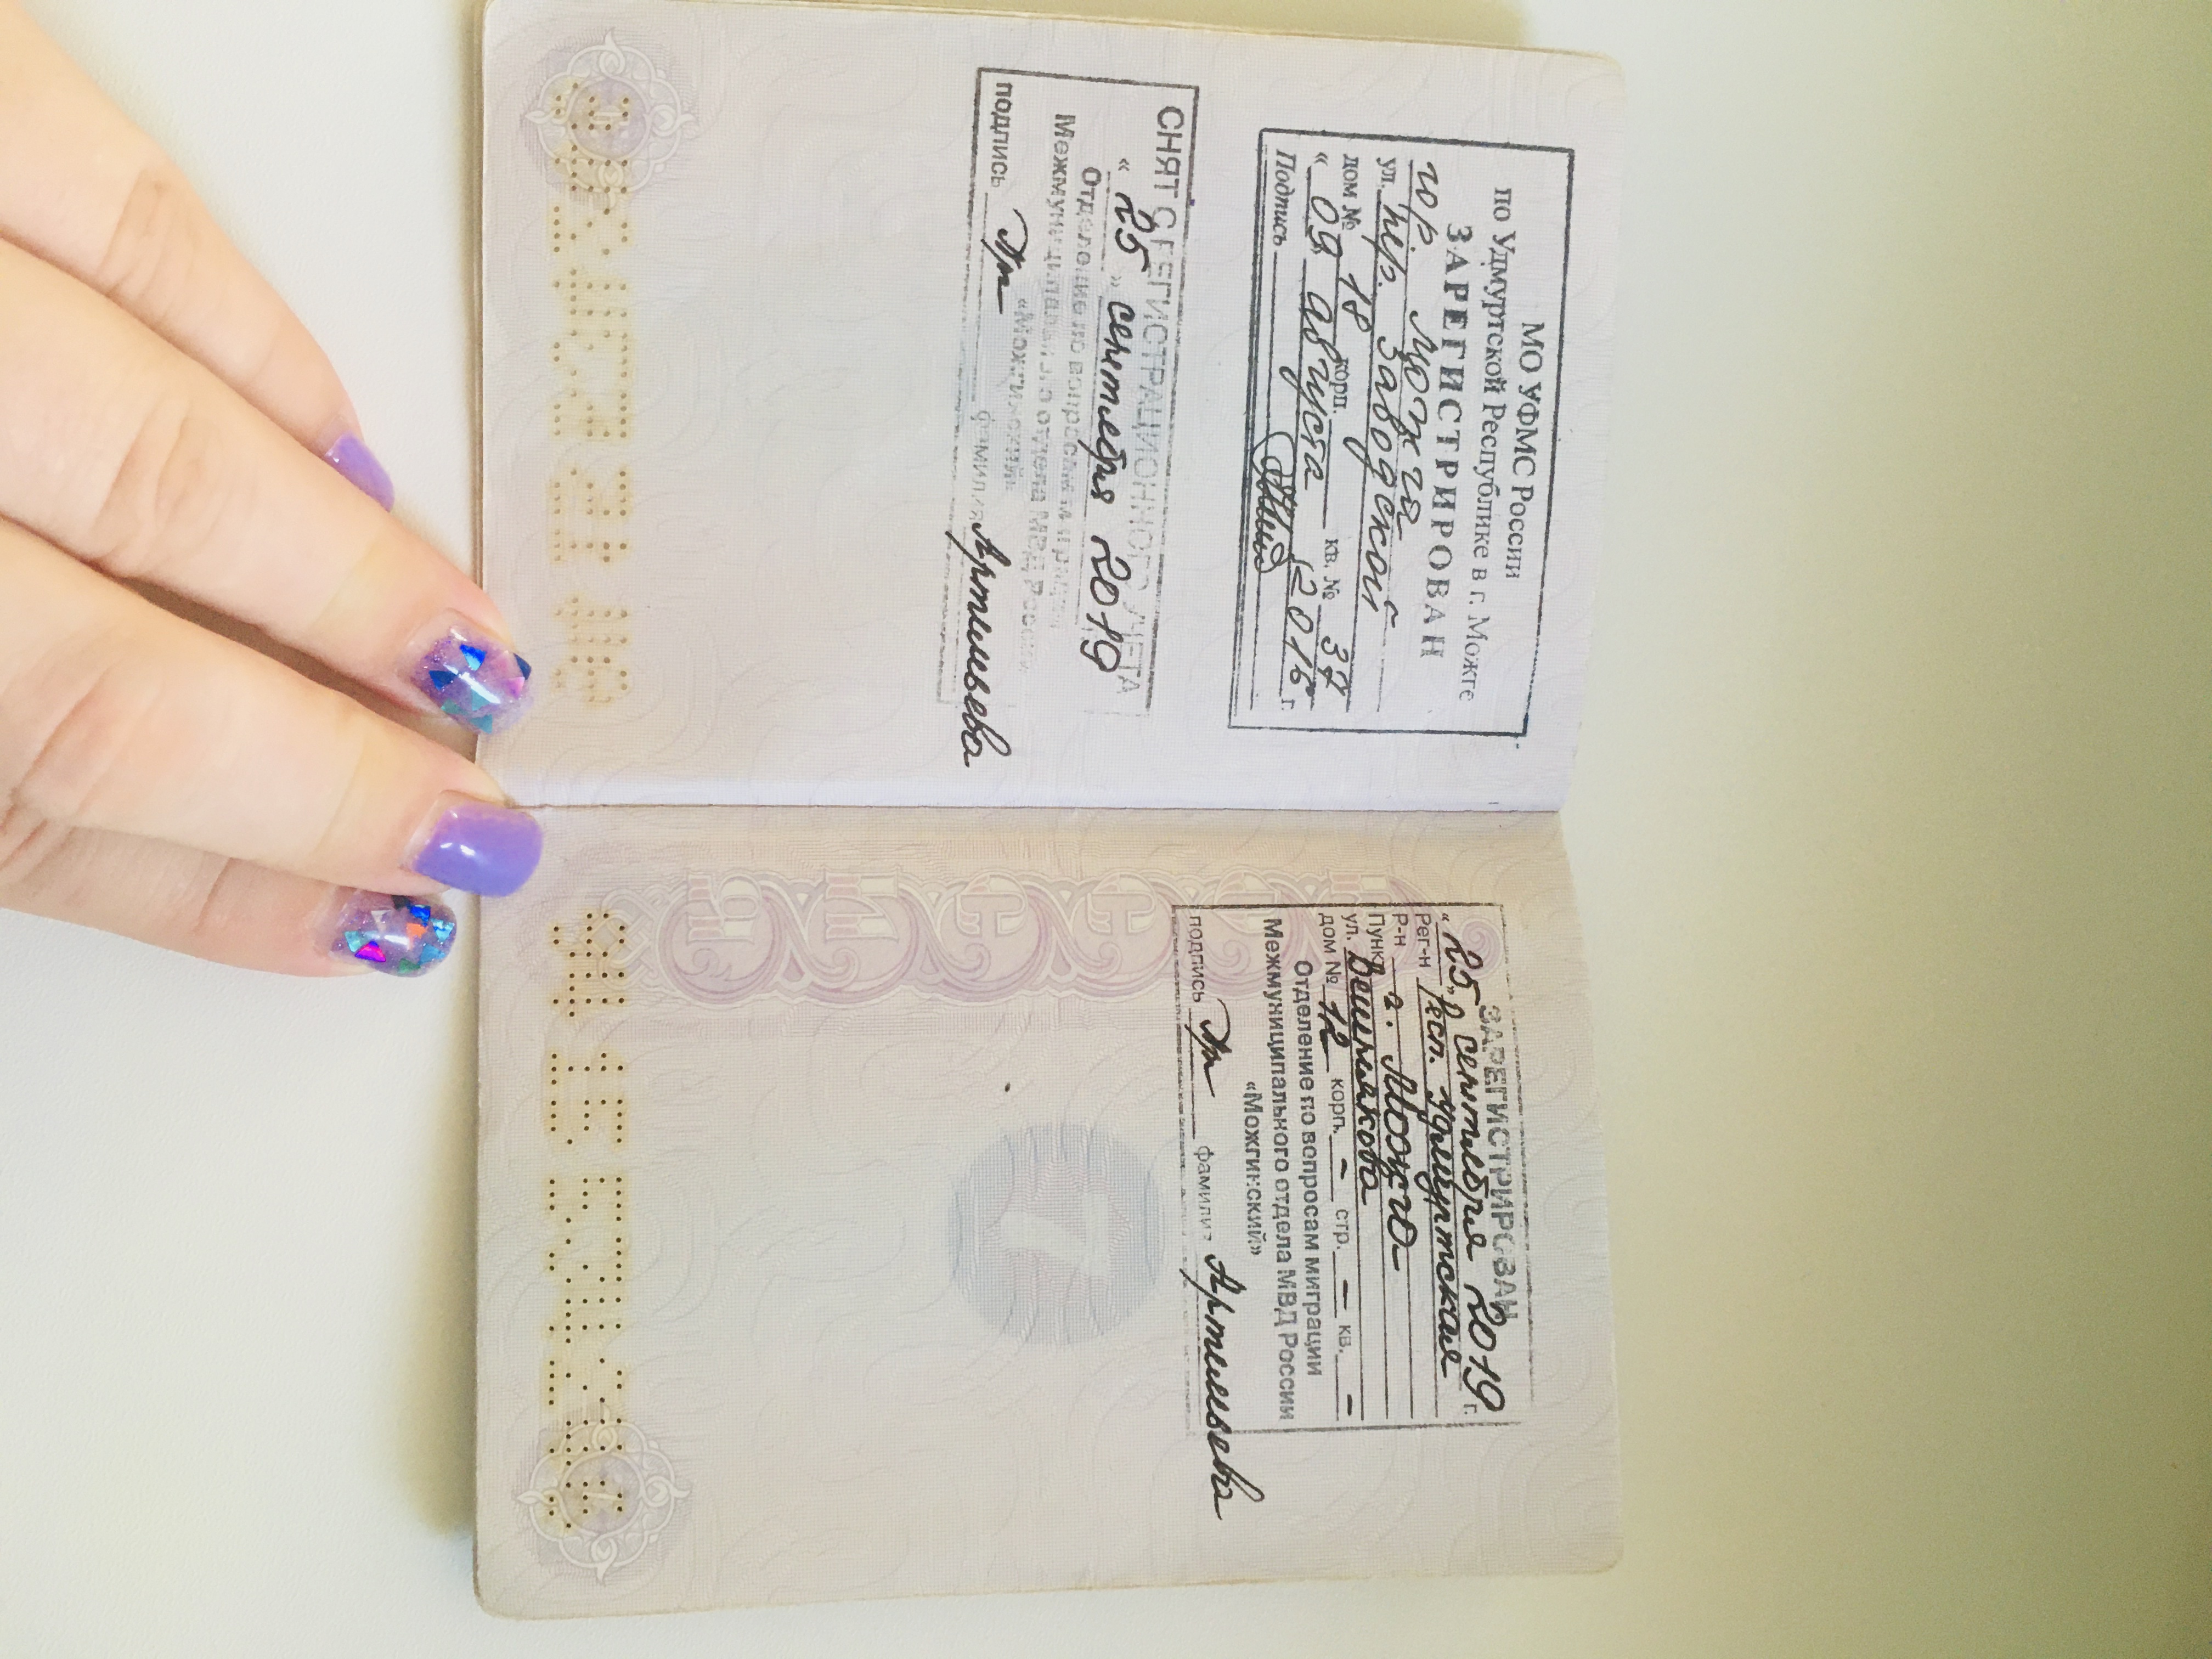 МО УФМС России
по Удмуртской Республике в г. Можге
ЗАРЕГИСТРИРОВАН
гор. Можга
ул. пер. Заводской
дом № 18 корп. кв. № 37
« 09 августа 2016 г.
Подпись
СНЯТ С РЕГИСТРАЦИОННОГО УЧЕТА
« 25 » сентября 2019
Отделение по вопросам миграции
Межмуниципального отдела МВД России
«Можгинский»
подпись фамилия Артемьева
ЗАРЕГИСТРИРОВАН
« 25 » сентября 2019 г.
Рег-н Респ. Удмуртская
Р-н
Пункт г. Можга
ул. Вешнякова
дом № 12 корп. – стр. – кв. –
Отделение по вопросам миграции
Межмуниципального отдела МВД России
«Можгинский»
подпись фамилия Артемьева